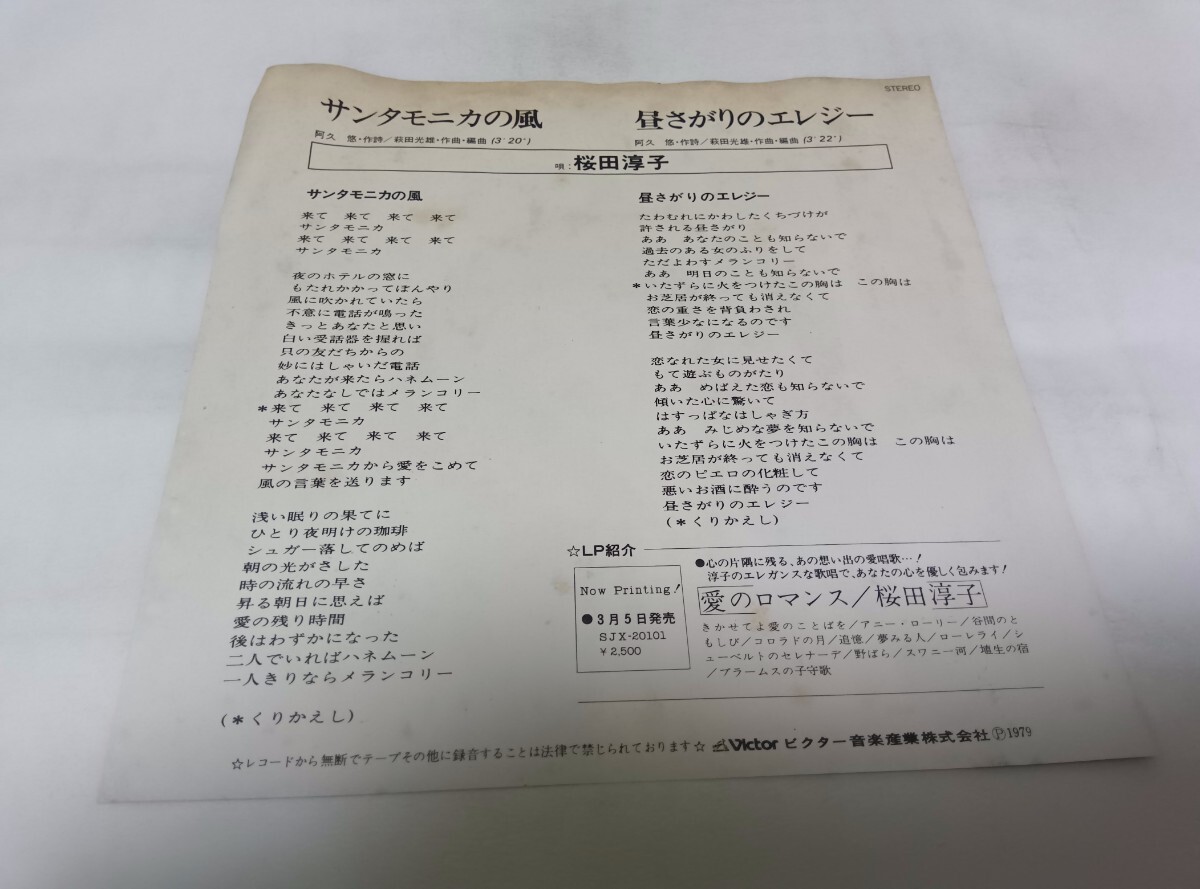 STEREO
サンタモニカの風
阿久 悠・作詩/萩田光雄・作曲・編曲 (3'20")
昼さがりのエレジー
阿久 悠・作詩/萩田光雄・作曲・編曲 (3'22")
唄：桜田淳子
サンタモニカの風
来て 来て 来て 来て
サンタモニカ
来て 来て 来て 来て
サンタモニカ
夜のホテルの窓に
もたれかかってぼんやり
風に吹かれていたら
不意に電話が鳴った
きっとあなたと思い
白い受話器を握れば
只の友だちからの
妙にはしゃいだ電話
あなたが来たらハネムーン
あなたなしではメランコリー
*来て 来て 来て 来て
サンタモニカ
来て 来て 来て 来て
サンタモニカ
サンタモニカから愛をこめて
風の言葉を送ります
浅い眠りの果てに
ひとり夜明けの珈琲
シュガー落してのめば
朝の光がさした
時の流れの早さ
昇る朝日に思えば
愛の残り時間
後はわずかになった
二人でいればハネムーン
一人きりならメランコリー
(*くりかえし)
昼さがりのエレジー
たわむれにかわしたくちづけが
許される昼さがり
ああ あなたのことも知らないで
過去のある女のふりをして
ただよわすメランコリー
ああ 明日のことも知らないで
*いたずらに火をつけたこの胸は この胸は
お芝居が終っても消えなくて
恋の重さを背負わされ
言葉少なになるのです
昼さがりのエレジー
恋なれた女に見せたくて
もて遊ぶものがたり
ああ めばえた恋も知らないで
傾いた心に驚いて
はすっぱなはしゃぎ方
ああ みじめな夢を知らないで
いたずらに火をつけたこの胸は この胸は
お芝居が終っても消えなくて
恋のピエロの化粧して
悪いお酒に酔うのです
昼さがりのエレジー
(*くりかえし)
☆LP紹介
Now Printing!
●3月5日発売
SJX-20101
¥2,500
●心の片隅に残る、あの想い出の愛唱歌…!
淳子のエレガンスな歌唱で、あなたの心を優しく包みます!
愛のロマンス/桜田淳子
きかせてよ愛のことばを/アニー・ローリー/谷間のと
もしび/コロラドの月/追憶/夢みる人/ローレライ/シ
ューベルトのセレナーデ/野ばら/スワニー河/埴生の宿
/ブラームスの子守歌
☆レコードから無断でテープその他に録音することは法律で禁じられております☆ Victor ビクター音楽産業株式会社Ⓟ1979